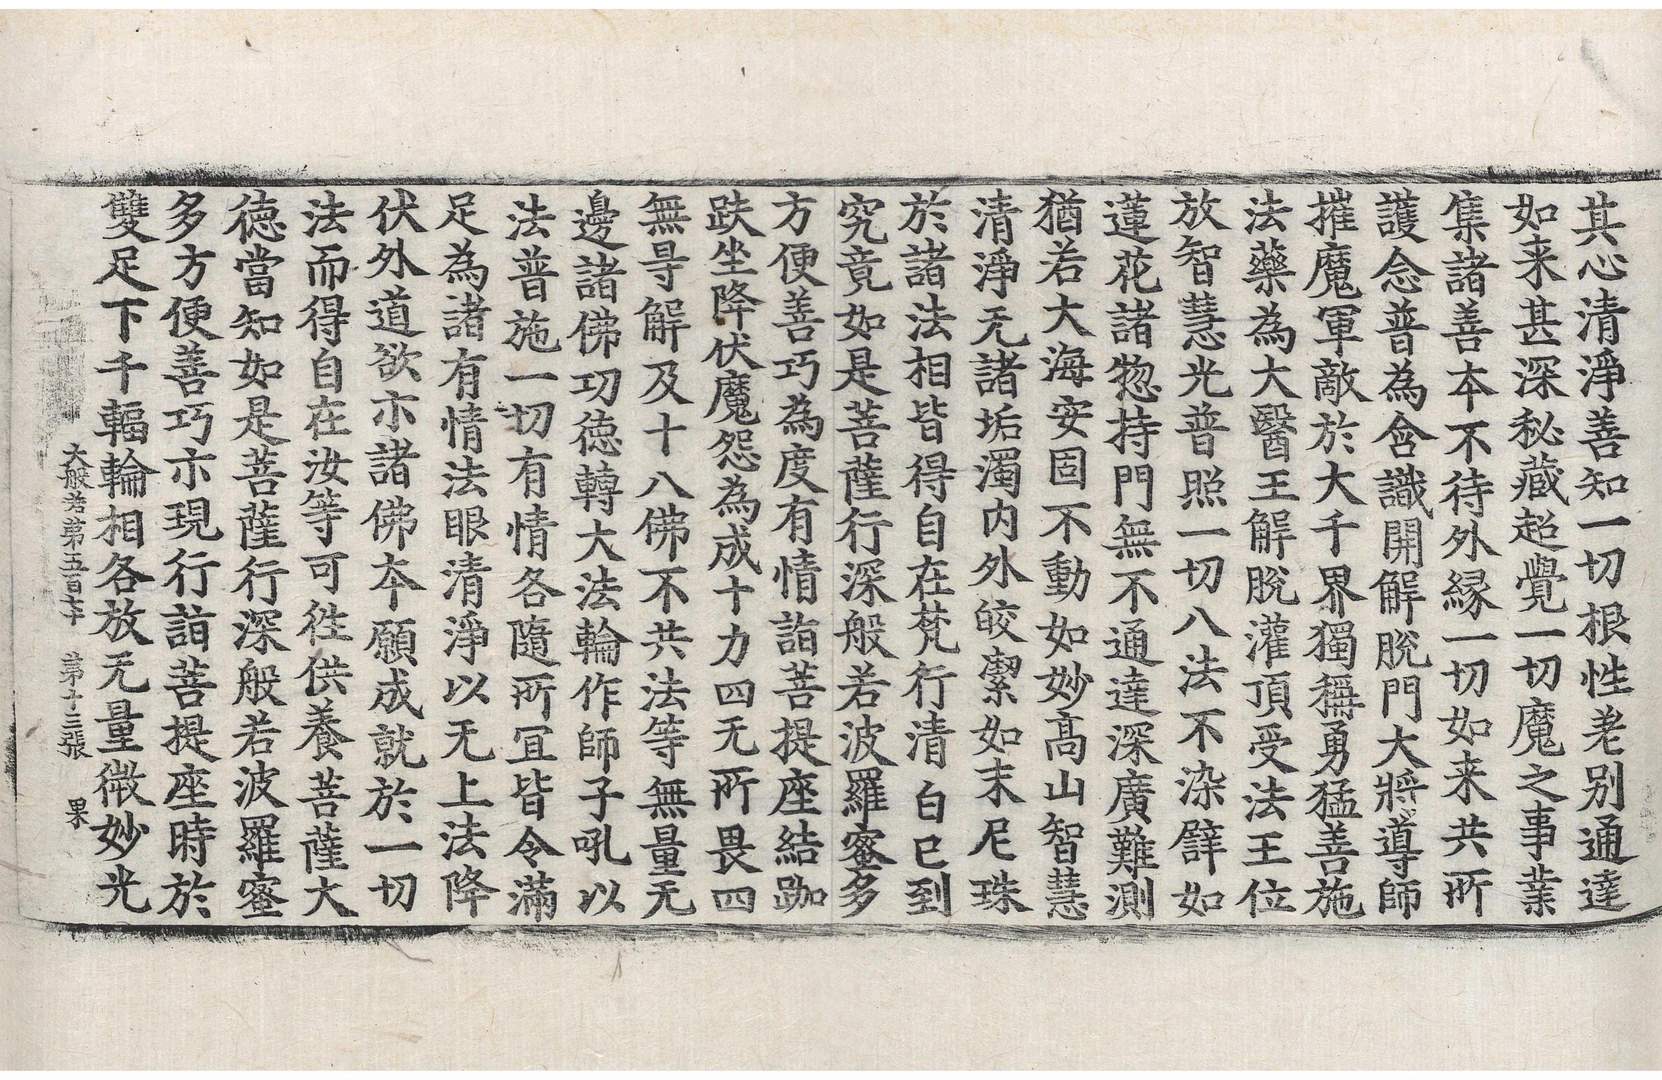 其心清淨善知一切根性差別通達
如来甚深秘藏超覺一切魔之事業
集諸善本不待外緣一切如来共所
護念普為含識開解脫門大將導師
摧魔軍敵於大千界獨稱勇猛善施
法藥為大醫王解脫灌頂受法王位
放智慧光普照一切八法不染譬如
蓮花諸惣持門無不通達深廣難測
猶若大海安固不動如妙高山智慧
清淨无諸垢濁內外皎潔如末尼珠
於諸法相皆得自在梵行清白已到
究竟如是菩薩行深般若波羅蜜多
方便善巧為度有情詣菩提座結跏
趺坐降伏魔怨為成十力四无所畏四
無㝵解及十八佛不共法等無量无
邊諸佛功德轉大法輪作師子吼以
法普施一切有情各隨所冝皆令滿
足為諸有情法眼清淨以无上法降
伏外道欲亦諸佛本願成就於一切
法而得自在汝等可徃供養菩薩大
德當知如是菩薩行深般若波羅蜜
多方便善巧亦現行詣菩提座時於
雙足下千輻輪相各放无量微妙光
大般若第五百六十　第十三張　果